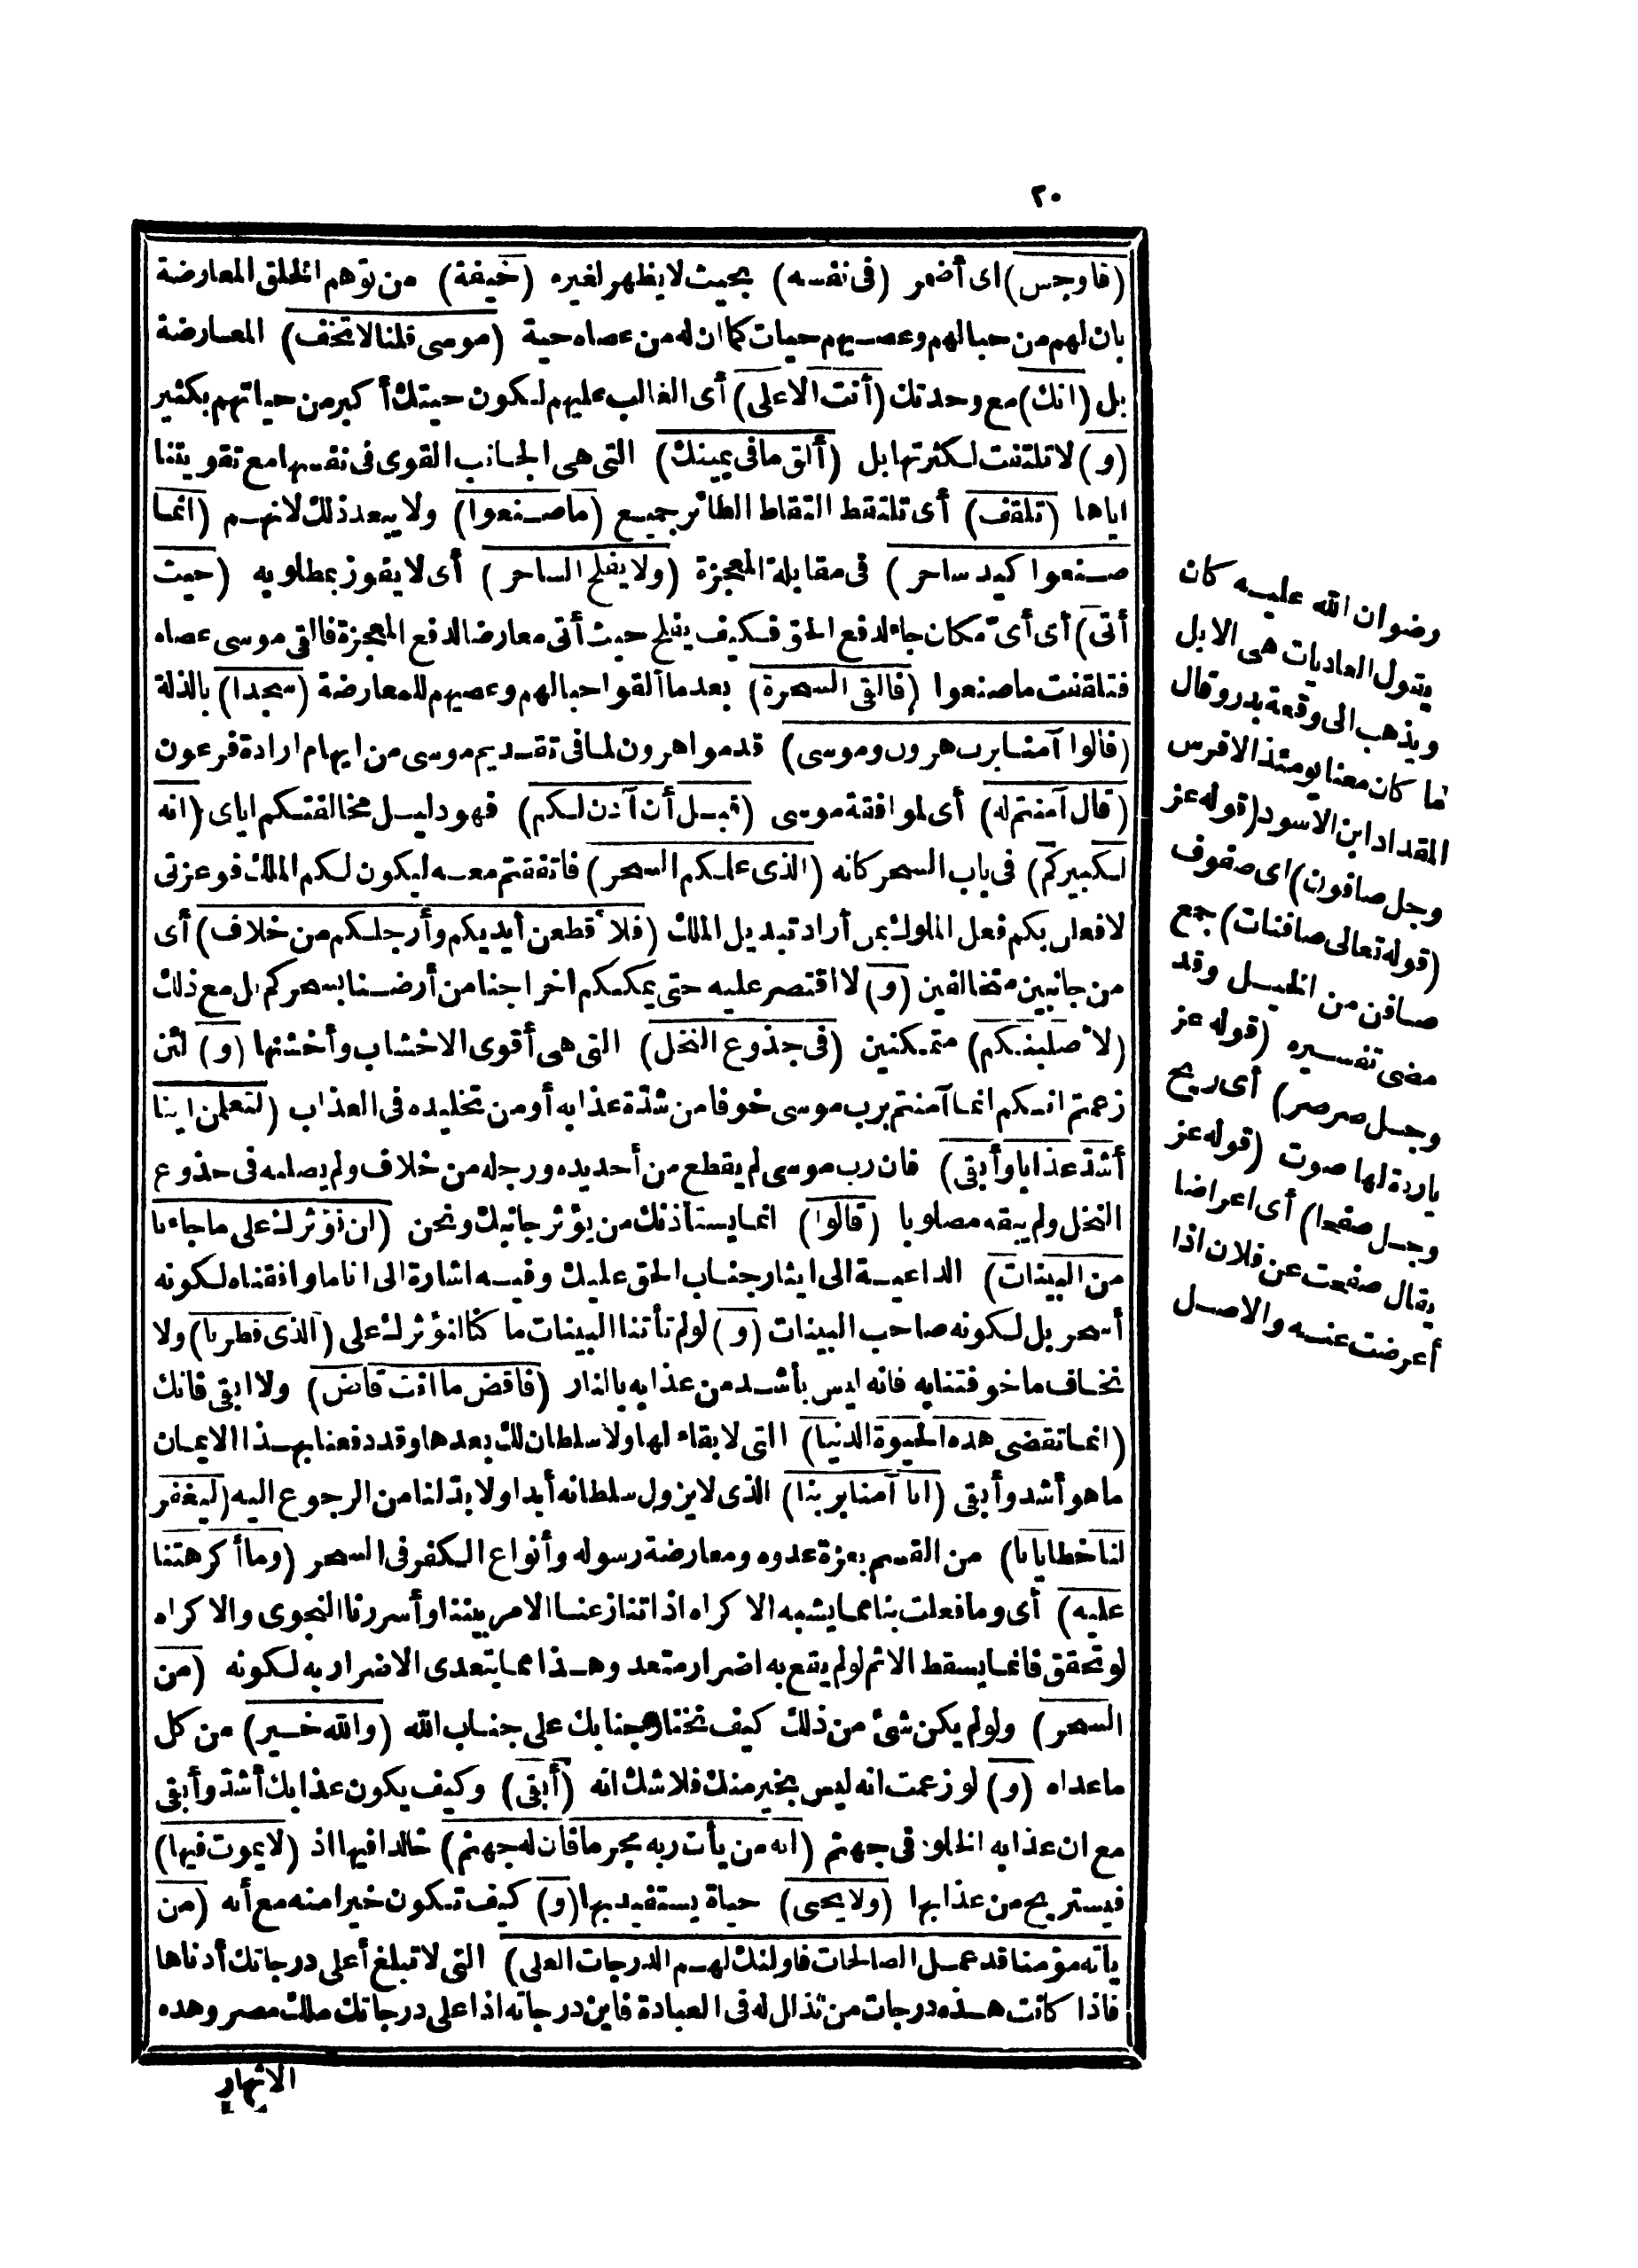 ٢٠
(فاوجس) اى أضمر (فى نفسه) بحيث لا يظهر لغيره (خيفة) من توهم الخلق المعارضة
بان لهم من حبالهم وعصيهم حيات كما ان له من عصاه حية (موسى قلنا لا تخف) المعارضة
بل (انك) مع وحدتك (أنت الاعلى) أى الغالب عليهم لكون حيتك أكبر من حياتهم بكثير
(و) لا تلتفت لكثرتها بل (ألق ما فى يمينك) التى هى الجانب القوى فى نفسها مع تقويتنا
اياها (تلقف) أى تلتقط التقاط الطائر جميع (ما صنعوا) ولا يبعد ذلك لانهم (انما
صنعوا كيد ساحر) فى مقابلة المعجزة (ولا يفلح الساحر) أى لا يفوز بمطلوبه (حيث
أتى) أى أىّ مكان جاء لدفع الحق فكيف يفلح حيث أتى معارضا لدفع المعجزة فالقى موسى عصاه
فتلقفت ما صنعوا (فالقى السحرة) بعد ما ألقوا حبالهم وعصيهم للمعارضة (سجدا) بالذلة
(قالوا آمنا برب هرون وموسى) قدموا هرون لما فى تقديم موسى من ايهام ارادة فرعون
(قال آمنتم له) أى لموافقة موسى (قبل أن آذن لكم) فهو دليل مخالفتكم اياى (انه
لكبيركم) فى باب السحر كانه (الذى علمكم السحر) فاتفقتم معه ليكون لكم الملك فوعزتى
لافعلن بكم فعل الملوك بمن أراد تبديل الملك (فلأقطعن أيديكم وأرجلكم من خلاف) أى
من جانبين متخالفين (و) لا اقتصر عليه حتى يمكنكم اخراجنا من أرضنا بسحركم بل مع ذلك
(لأصلبنكم) متمكنين (فى جذوع النخل) التى هى أقوى الاخشاب وأخشنها (و) لئن
زعمتم انكم انما آمنتم برب موسى خوفا من شدّة عذابه أو من تخليده فى العذاب (لتعلمن اينا
أشدّ عذابا وأبقى) فان رب موسى لم يقطع من أحد يده ورجله من خلاف ولم يصلبه فى جذوع
النخل ولم يبقه مصلوبا (قالوا) انما يستأذنك من يؤثر جانبك ونحن (لن نؤثرك على ما جاءنا
من البينات) الداعية الى ايثار جناب الحق عليك وفيه اشارة الى انا ما وافقناه لكونه
أسحر بل لكونه صاحب البينات (و) لو لم تأتنا البينات ما كنا لنؤثرك على (الذى فطرنا) ولا
نخاف ما خوفتنا به فانه ليس بأشد من عذابه بالنار (فاقض ما انت قاض) ولا ابقى فانك
(انما تقضى هذه الحيوة الدنيا) التى لا بقاء لها ولا سلطان لك بعدها وقد دفعنا بهذا الايمان
ما هو أشد وأبقى (انا آمنا بربنا) الذى لا يزول سلطانه أبدا ولا بدّ لنا من الرجوع اليه (ليغفر
لنا خطايانا) من القسم بعزة عدوه ومعارضة رسوله وأنواع الكفر فى السحر (وما أكرهتنا
عليه) أى وما فعلت بنا مما يشبه الاكراه اذ اتنازعنا الامر بيننا وأسررنا النجوى والاكراه
لو تحقق فانما يسقط الاثم لو لم يقع به اضرار متعد وهذا مما يتعدى الاضرار به لكونه (من
السحر) ولو لم يكن شئ من ذلك كيف نختار جنابك على جناب الله (والله خير) من كل
ما عداه (و) لو زعمت انه ليس بخير منك فلا شك انه (أبقى) وكيف يكون عذابك أشدّ وأبقى
مع ان عذابه الخلود فى جهنم (انه من يأت ربه مجرما فان له جهنم) خالدا فيها اذ (لا يموت فيها)
فيستريح من عذابها (ولا يحيى) حياة يستفيد بها (و) كيف تكون خيرا منه مع أنه (من
يأته مؤمنا قد عمل الصالحات فاولئك لهم الدرجات العلى) التى لا تبلغ أعلى درجاتك أدناها
فاذا كانت هذه درجات من تذلل له فى العبادة فاين درجاته اذ اعلى درجاتك ملك مصر وهذه
الانهار
رضوان الله عليه كان
يقول العاديات هى الابل
ويذهب الى وقعة بدر وقال
ما كان معنا يومئذ الا فرس
المقداد ابن الاسود (قوله عز
وجل صافون) اى صفوف
(قوله تعالى صافنات) جمع
صافن من الخيل وقد
مضى تفسيره (قوله عز
وجل صرصر) أى ريح
باردة لها صوت (قوله عز
وجل صفحا) أى اعراضا
يقال صفحت عن فلان اذا
أعرضت عنه والاصل